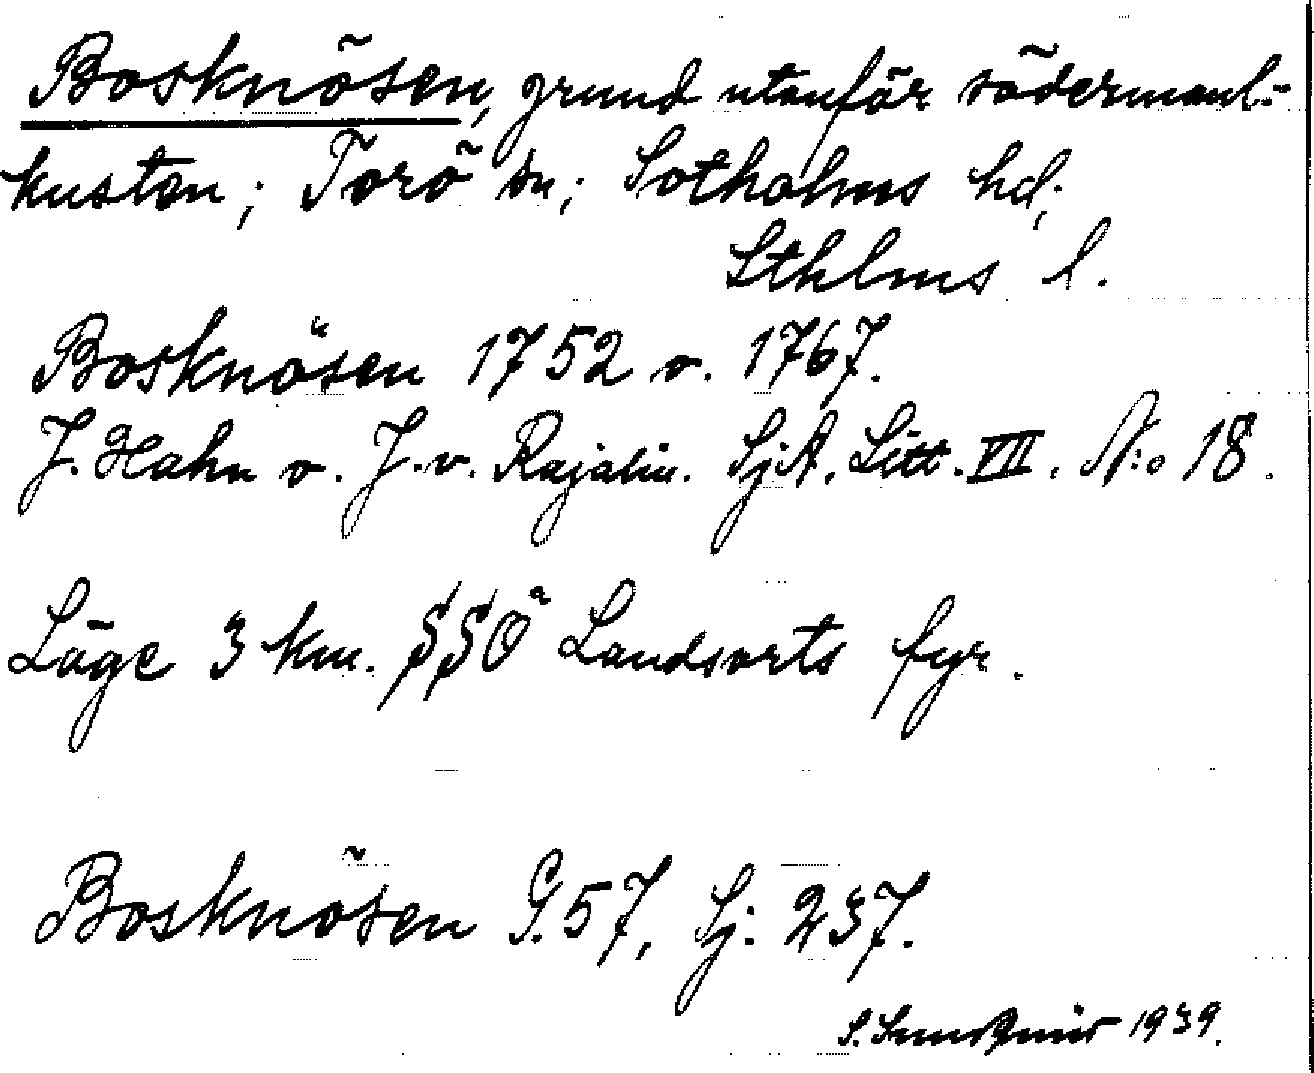 Bosknösen, grund utanför södermanl.-
kusten; Torö sn; Sotholms hd;
Sthlms l.
Bosknösen 1752 o. 1767.
J. Hahn o. J. v. Rajalin. SjA. Litt. VII. N:o 18.
Läge 3 km. SSÖ Landsorts fyr.
Bosknösen G. 57, Sj: 237.
S. 1939.